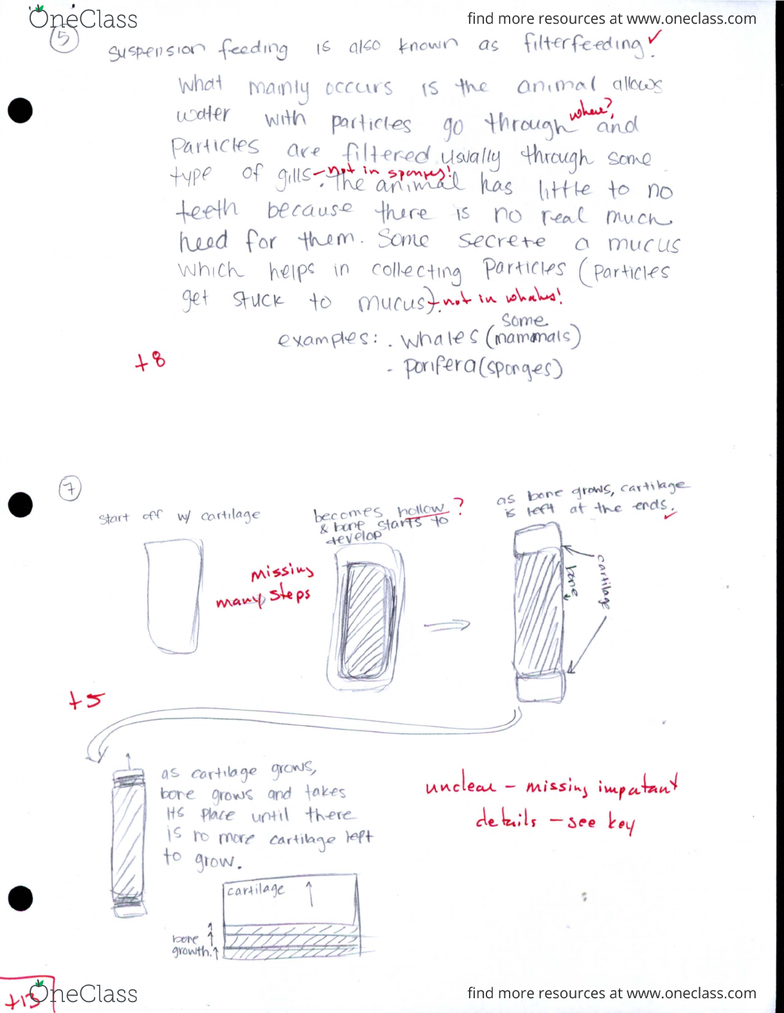 OneClass
find more resources at www.oneclass.com
5
suspension feeding is also known as filterfeeding.
What mainly occurs is the animal allows
where?
water with particles go through and
Particles are filtered usually through some
type of gills. The animal has little to no
-not in sponges!
teeth because there is no real much
need for them. Some secrete a mucus
which helps in collecting Particles (particles
get stuck to mucus). -not in whales!
some
examples: . whales (mammals)
+8
- porifera (sponges)
7
start off w/ cartilage
becomes hollow ?
& bone starts to
develop
as bone grows, cartilage
is left at the ends.
missing
many steps
cartilage
bone
+5
as cartilage grows,
bone grows and takes
its place until there
is no more cartilage left
to grow.
unclear - missing important
details - see key
cartilage
bone
growth.
+13
OneClass
find more resources at www.oneclass.com